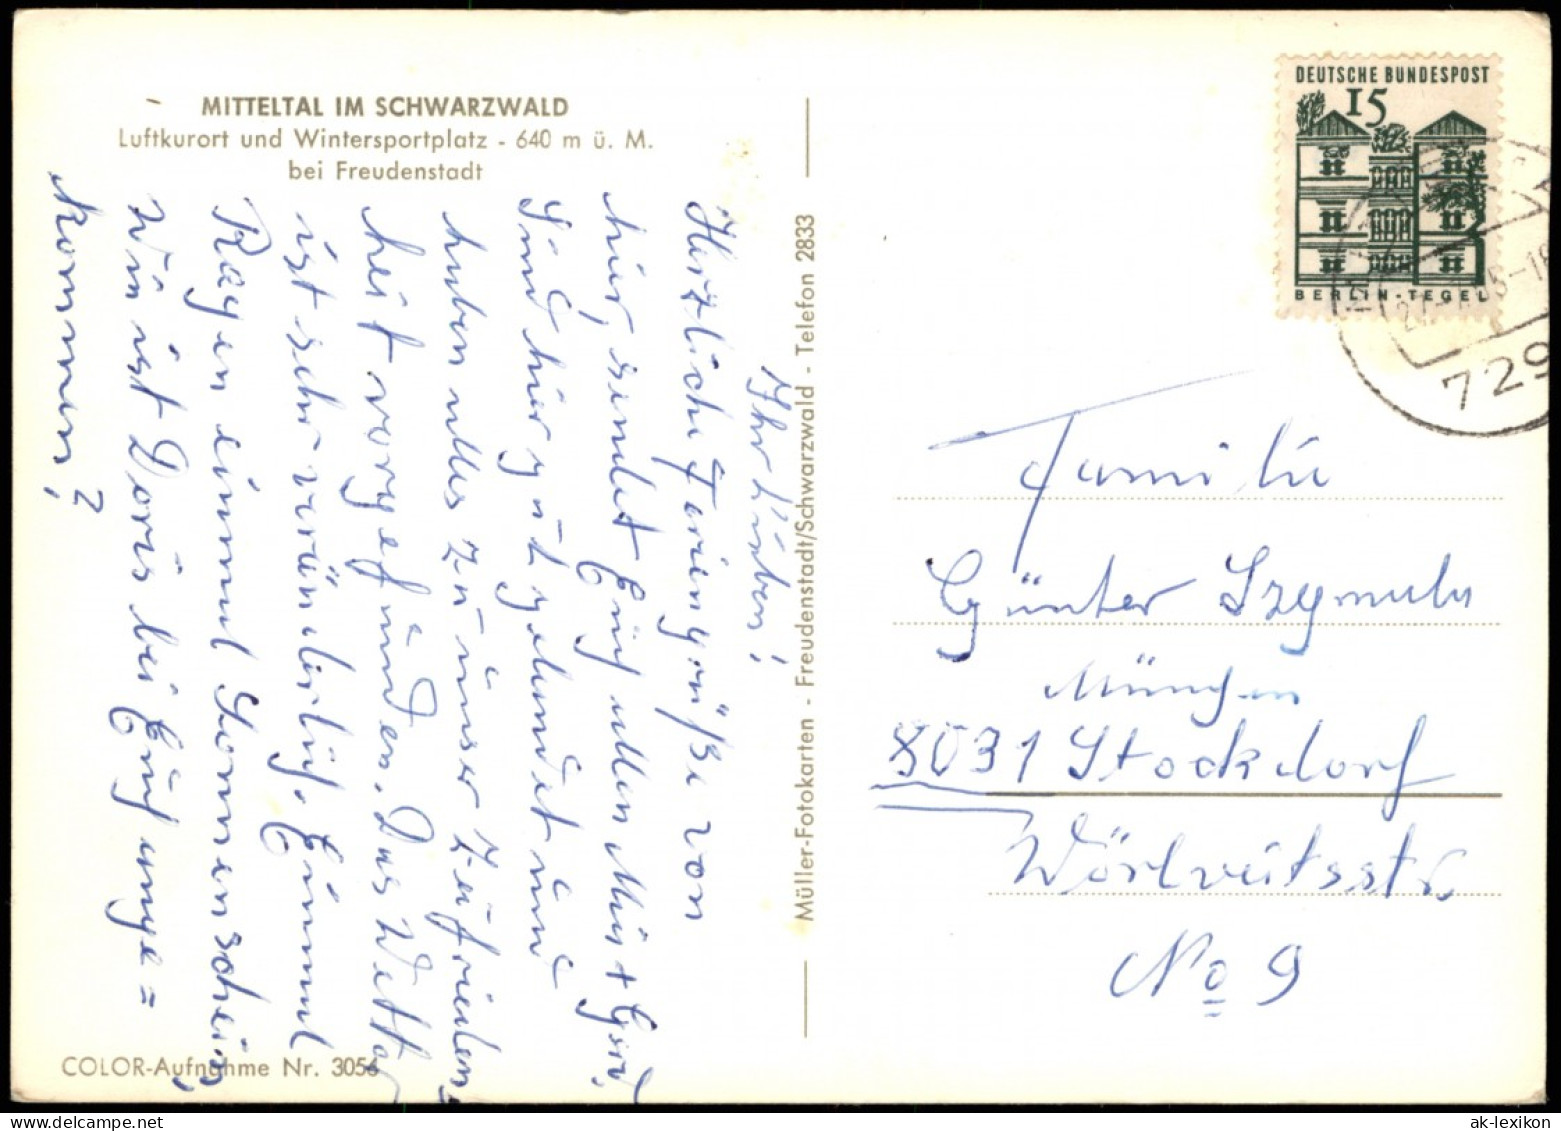 MITTELTAL IM SCHWARZWALD
Luftkurort und Wintersportplatz - 640 m ü. M.
bei Freudenstadt
Ihr Lieben!
Herzliche Feriengrüße von
hier, sendet Euch allen Mis + Gerd.
Sind hier gut gelandet und
haben alles zu unser Zufrieden-
heit vorgefunden. Das Wetter
ist sehr veränderlich. Einmal
Regen einmal Sonnenschein,
Wie ist Doris bei Euch ange=
kommen?
COLOR-Aufnahme Nr. 3056
Müller-Fotokarten - Freudenstadt/Schwarzwald - Telefon 2833
DEUTSCHE BUNDESPOST
15
BERLIN-TEGEL
729
Familie
Günter Szymula
München
8031 Stockdorf
Wörlveitsstr.
No 9
ak-lexikon